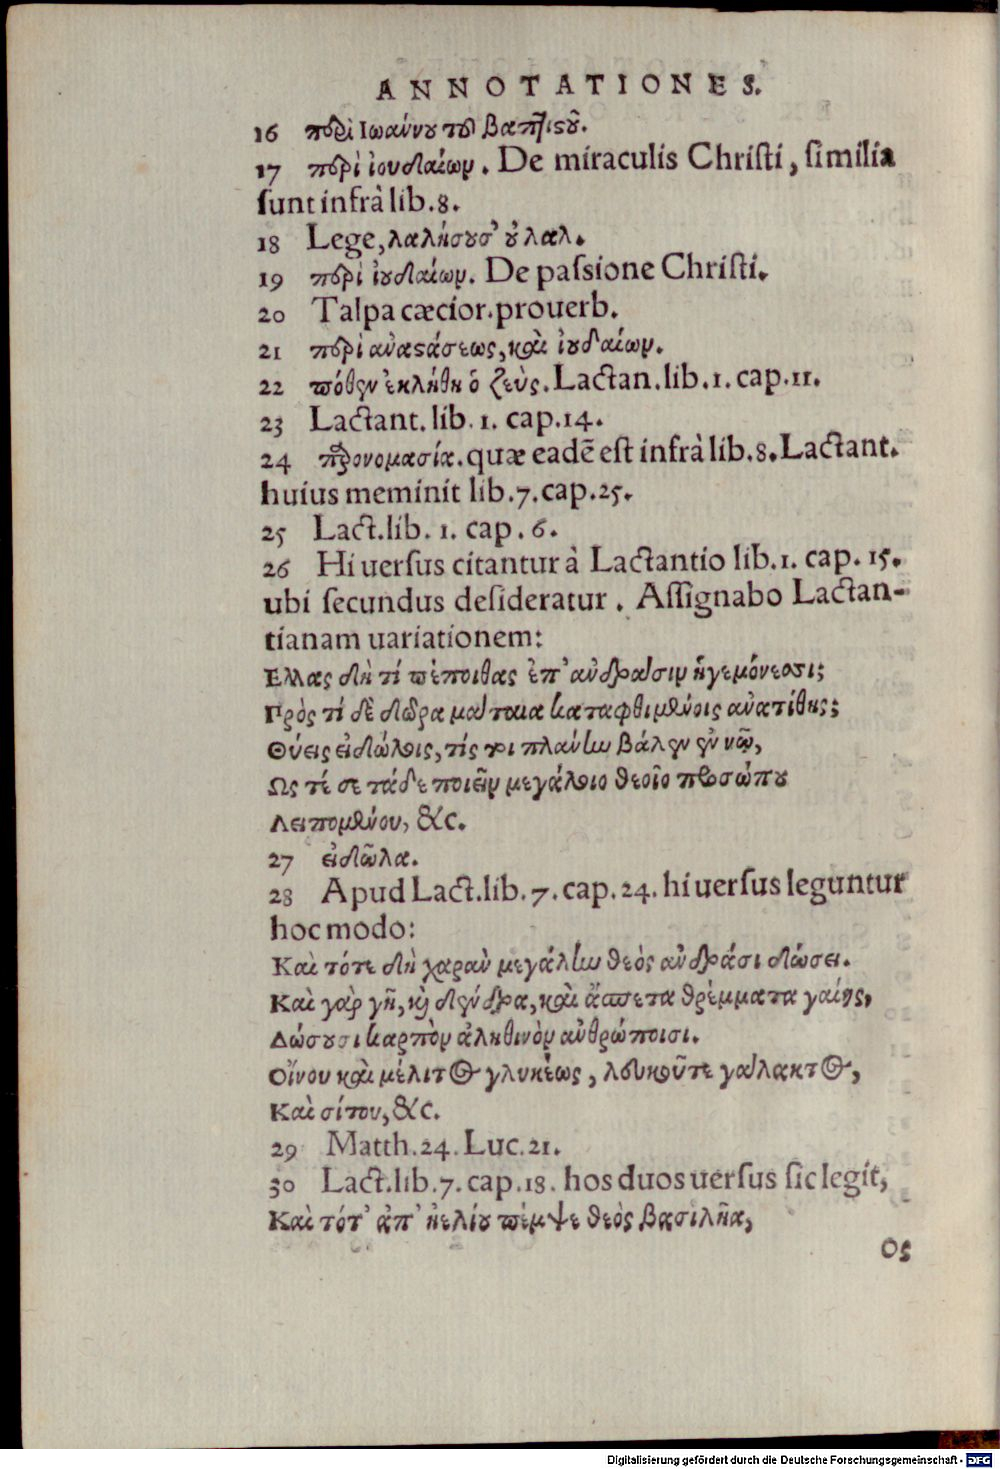 ANNOTATIONES.
16 περὶ Ιωάννου τοῦ βαπτιστοῦ.
17 περὶ ἰουδαίων. De miraculis Christi, similia
sunt infrà lib.8.
18 Lege, λαλήσουσ' οὐ λαλ.
19 περὶ ἰουδαίων. De passione Christi.
20 Talpa cæcior. prouerb.
21 περὶ ἀναστάσεως, καὶ ἰουδαίων.
22 πόθεν ἐκλήθη ὁ ζεὺς. Lactan.lib.1.cap.11.
23 Lactant. lib. 1. cap.14.
24 προνομασία. quæ eadē est infrà lib.8. Lactant.
huius meminit lib.7.cap.25.
25 Lact.lib. 1. cap. 6.
26 Hi uersus citantur à Lactantio lib.1. cap. 15.
ubi secundus desideratur. Assignabo Lactan-
tianam uariationem:
Ελλας δὴ τί πέποιθας ἐπ' ἀνδράσιν ἡγεμόνεσσι;
Πρὸς τί δὲ δῶρα μάταια καταφθιμένοις ἀνατίθης;
Θύεις εἰδώλοις, τίς τοι πλάνην βάλεν ἐν νῷ,
Ως τέ σε τάδε ποιεῖν μεγάλοιο θεοῖο προσώπου
Λειπομένου, &c.
27 εἰδῶλα.
28 Apud Lact.lib.7.cap.24. hi uersus leguntur
hoc modo:
Καὶ τότε δὴ χαρὰν μεγάλην θεὸς ἀνδράσι δώσει.
Καὶ γὰρ γῆ, καὶ δένδρα, καὶ ἄσπετα θρέμματα γαίης,
Δώσουσι καρπὸν ἀληθινὸν ἀνθρώποισι.
Οἴνου καὶ μέλιτος γλυκέως, λευκοῦ τε γάλακτος,
Καὶ σίτου, &c.
29 Matth.24. Luc.21.
30 Lact.lib.7.cap.18. hos duos uersus sic legit,
Καὶ τότ' ἀπ' ἠελίου πέμψε θεὸς βασιλῆα,
Ος
Digitalisierung gefördert durch die Deutsche Forschungsgemeinschaft - DFG